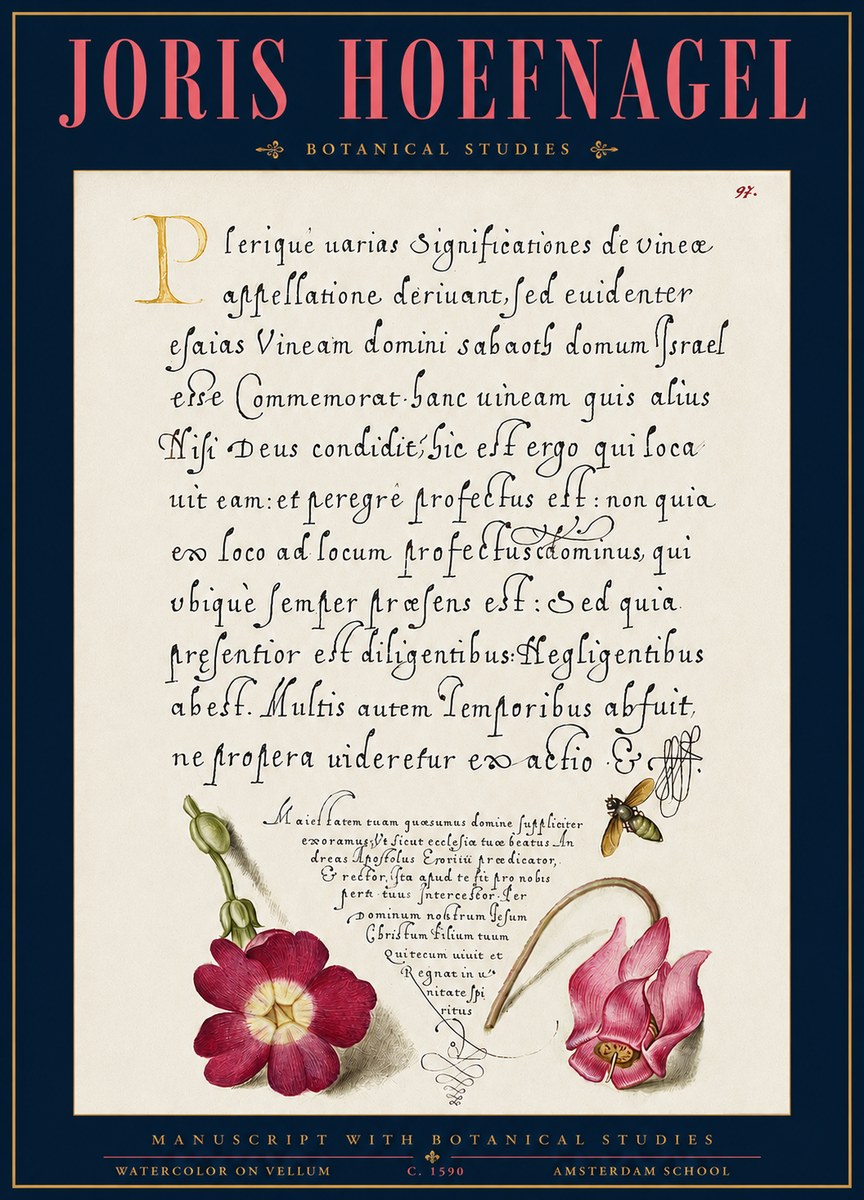 JORIS HOEFNAGEL
BOTANICAL STUDIES
97.
Plerique uarias Significationes de vineæ
appellatione deriuant, sed euidenter
esaias Vineam domini sabaoth domum Israel
esse Commemorat. hanc uineam quis alius
Nisi Deus condidit; hic est ergo qui loca
uit eam: et peregrè profectus est: non quia
ex loco ad locum profectus dominus, qui
vbiquè semper præsens est: Sed quia
pręsentior est diligentibus: Negligentibus
abest. Multis autem Temporibus abfuit,
ne propera uideretur exactio. &
Maiestatem tuam quæsumus domine suppliciter
exoramus; Vt sicut ecclesia tuæ beatus An
dreas Apostolus Eroritü prædicator,
& rector, Ita apud te sit pro nobis
perñ tuus Intercestor. Per
Dominum nostrum Jesum
Christum Filium tuum
Quitecum uiuit et
Regnat in u
nitate spi
ritus
MANUSCRIPT WITH BOTANICAL STUDIES
WATERCOLOR ON VELLUM C. 1590 AMSTERDAM SCHOOL